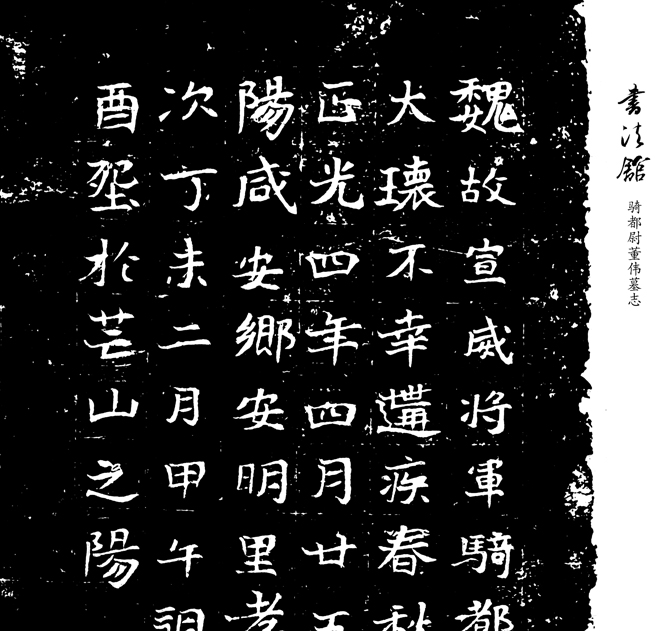 書法館
骑都尉董伟墓志
魏故宣威将軍騎都
大瓌不幸遘疾春秋
正光四年四月廿五
陽咸安鄉安明里孝
次丁未二月甲午
酉塟於芒山之陽